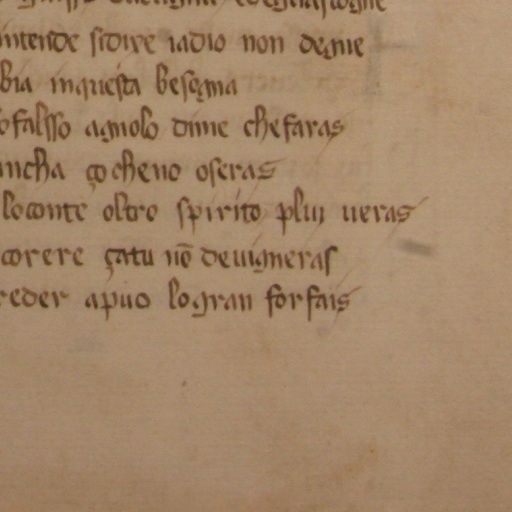 intende sidire iadio non degne
bia inquesta besogna
ofalsso agnolo dime chefaras
ncha ço cheno oseras
loconte oltro spirito plui ueras
corere çatu nē deuigneras
reder apuo logran forfais